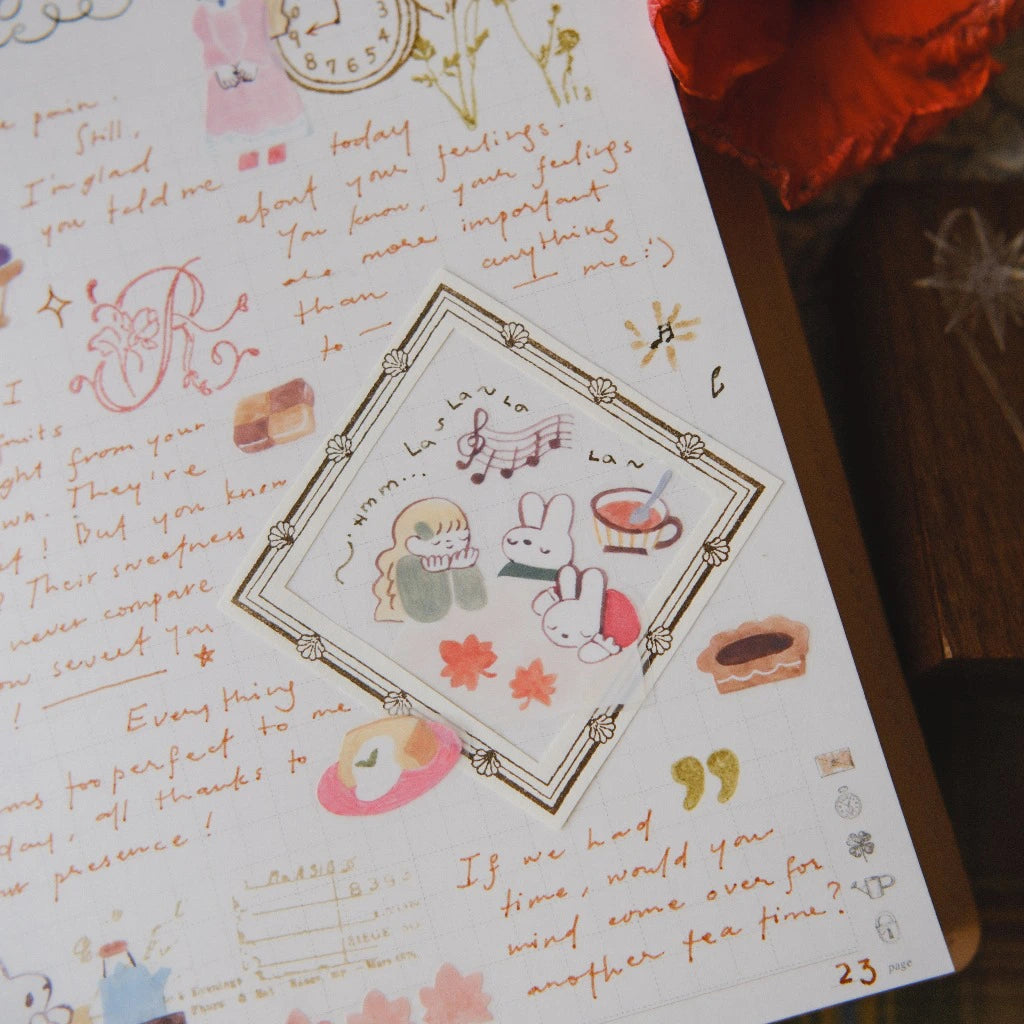 9 3 4 5 6 7 8
pain.
Still,
I'm glad
you told me
today
about your feelings.
You know, your feelings
are more important
than anything
to me :)
R
I
fruits
from your
They're
! But you know
Their sweetness
never compare
sweet you
!
Everything
too perfect to me
day, all thanks to
presence !
Lan Lan La
Lan
Hmm...
8393
SIEGE
Evenings
If we had
time, would you
mind come over for
another tea time?
23 page